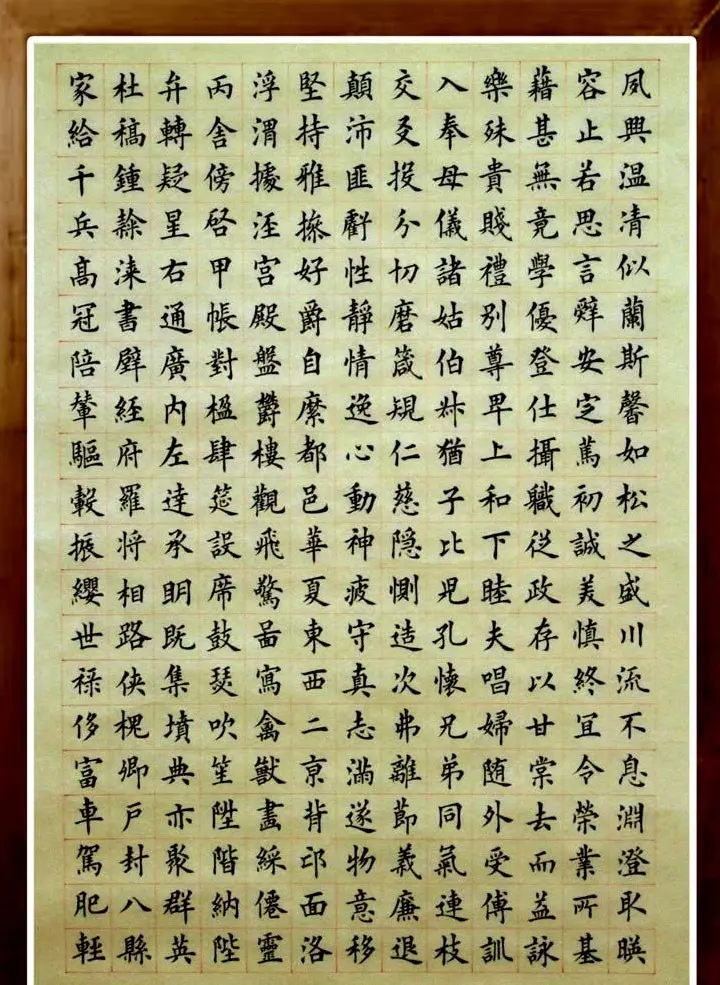 夙興温凊似蘭斯馨如松之盛川流不息淵澄取暎
容止若思言辭安定篤初誠美慎終宜令榮業所基
藉甚無竟學優登仕攝職從政存以甘棠去而益詠
樂殊貴賤禮別尊卑上和下睦夫唱婦随外受傅訓
入奉母儀諸姑伯叔猶子比兒孔懷兄弟同氣連枝
交友投分切磨箴規仁慈隐惻造次弗離節義廉退
顛沛匪虧性靜情逸心動神疲守真志滿逐物意移
堅持雅操好爵自縻都邑華夏東西二京背邙面洛
浮渭據涇宮殿盤欝樓觀飛驚啚寫禽獸畫綵僊靈
丙舍傍啓甲帳對楹肆筵設席鼓瑟吹笙陞階納陛
弁轉疑星右通廣内左達承明既集墳典亦聚群英
杜稿鍾隸漆書壁經府羅将相路侠槐卿戸封八縣
家給千兵髙冠陪輦驅轂振纓世禄侈富車駕肥輕